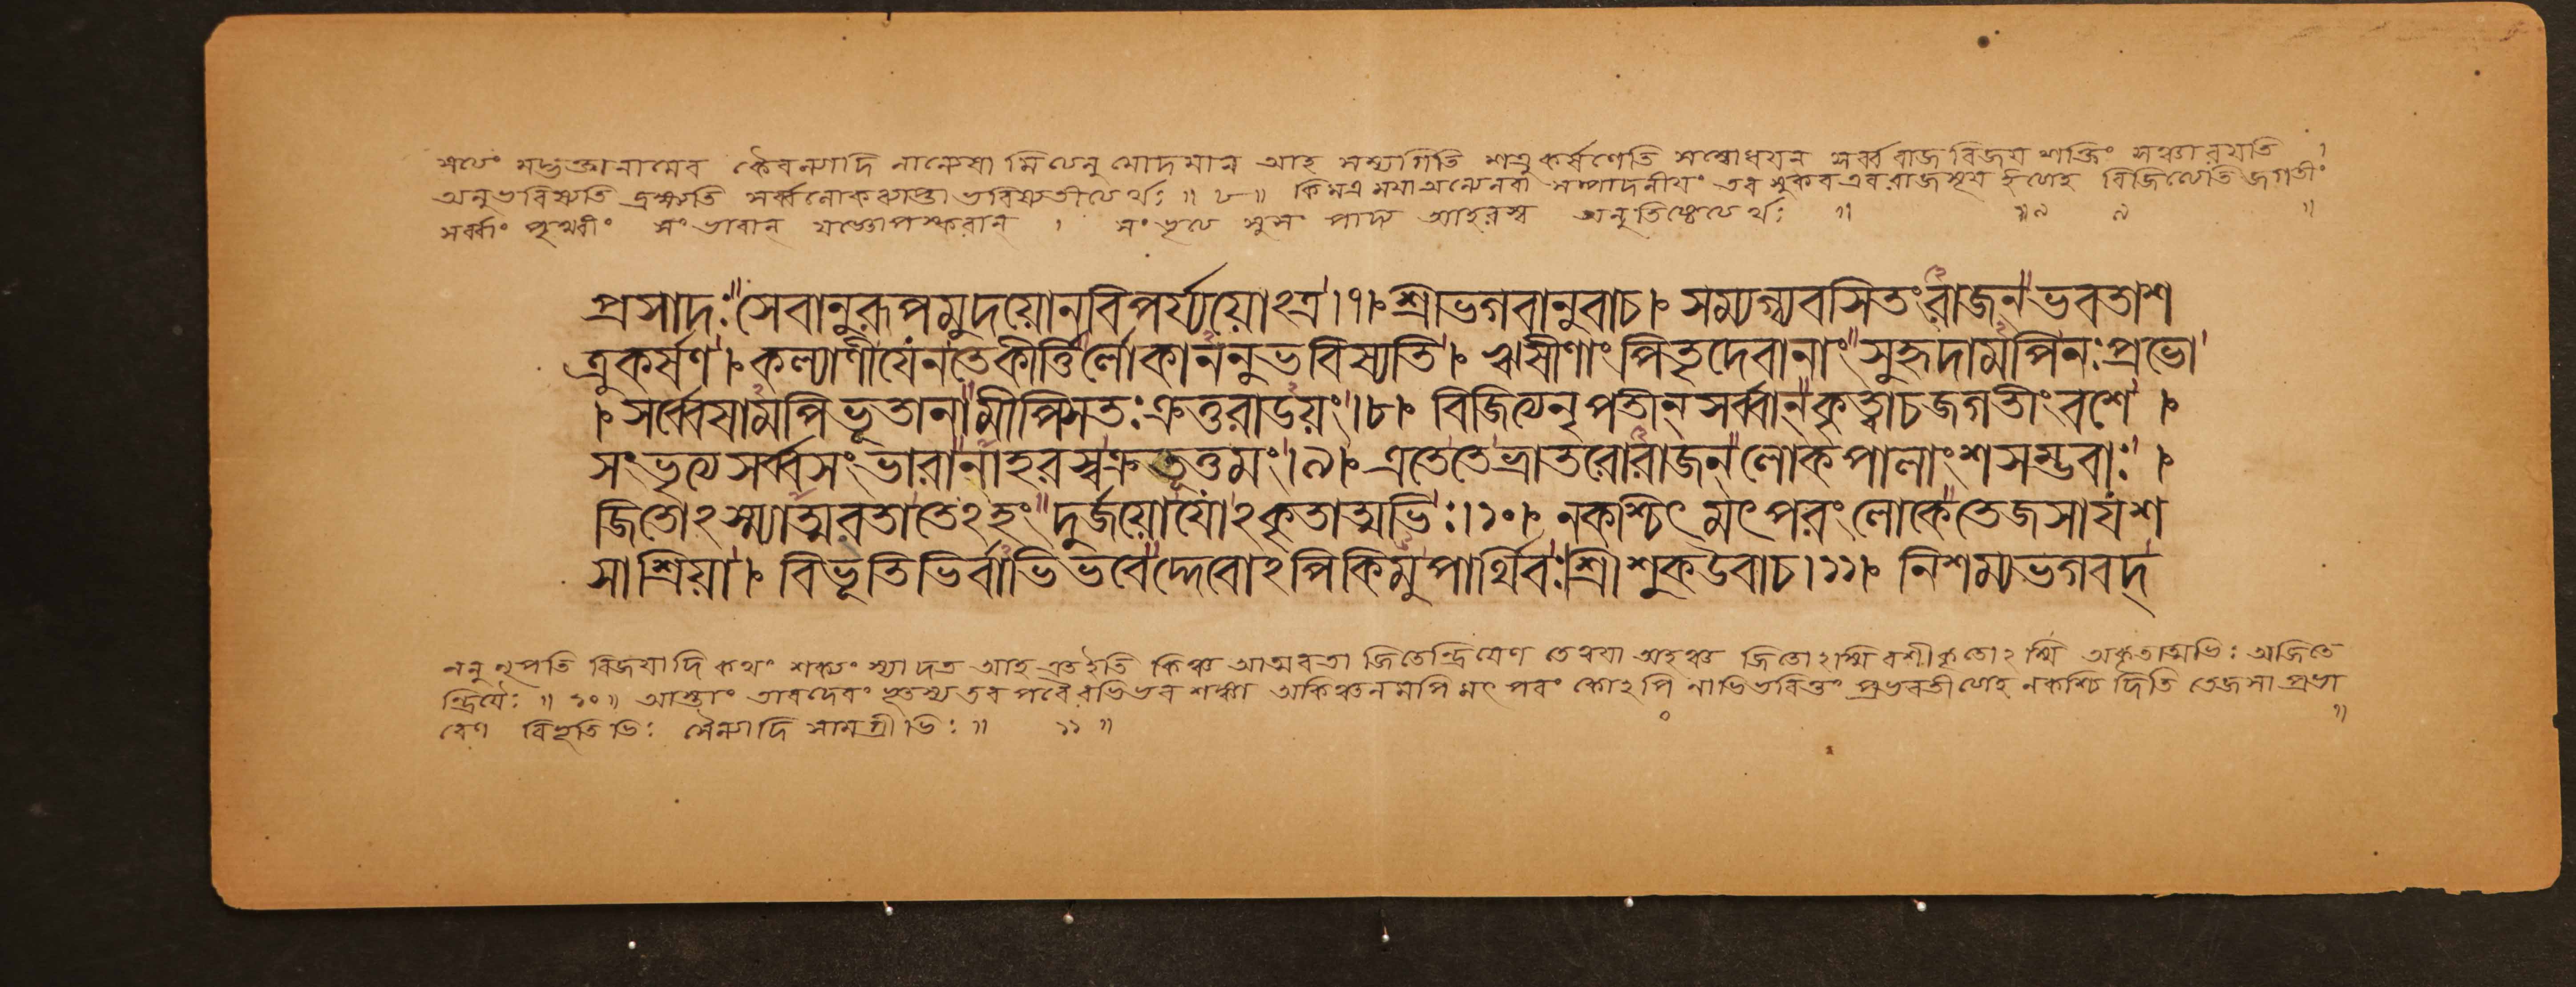 এবং মদ্ভক্তানামেব কৈবল্যাদি নান্যেষামিত্যনুমোদমান আহ সম্যগিতি শত্রুকর্ষণেতি সম্বোধয়ন সর্ব্বরাজবিজয় শক্তিং সঞ্চারয়তি ।
অনুভবিষ্যতি দ্রক্ষ্যতি সর্ব্বলোকব্যাপ্তা ভবিষ্যতীত্যর্থঃ ॥ ৮ ॥ কিমত্র ময়া অন্যেনবা সম্পাদনীয়ং তব সুকরএব রাজসূয় ইত্যাহ বিজিত্যেতি জগতীং
সর্ব্বাং পৃথ্বীং সংভারান্ যজ্ঞোপস্করান্ । সংভৃত্য সুসংপাদ্য আহরস্ব অনুতিষ্ঠেত্যর্থঃ ॥ ৯ ॥
প্রসাদঃ সেবানুরূপমুদয়োনবিপর্য্যয়োঽত্র।৭। শ্রীভগবানুবাচ। সম্যগ্ব্যবসিতংরাজন্ ভবতাশ
ত্রুকর্ষণ। কল্যাণীযেনতেকীর্ত্তির্লোকাননুভবিষ্যতি। ঋষীণাংপিতৃদেবানাংসুহৃদামপিনঃপ্রভো
। সর্ব্বেষামপিভূতানামীপ্সিতঃক্রতুরাডয়ং।৮। বিজিত্যনৃপতীন্সর্ব্বান্কৃত্বাচজগতীংবশে ।
সংভৃত্যসর্ব্বসংভারানাহরস্বক্রতূত্তমং।৯। এতেতেভ্রাতরোরাজন্লোকপালাংশসম্ভবাঃ ।
জিতোঽস্ম্যাত্মবতাতেঽহংদুর্জয়োযোঽকৃতাত্মভিঃ।১০। নকশ্চিৎমৎপরংলোকেতেজসাযশ
সাশ্রিয়া। বিভূতিভির্বাভিভবেদ্দেবোঽপিকিমুপার্থিবঃ।শ্রীশুকউবাচ।১১। নিশম্যভগবদ্
ননু নৃপতি বিজয়াদি কথং শক্যং স্যাদত আহ এতইতি কিঞ্চ আত্মবতা জিতেন্দ্রিয়েণ তেত্বয়া অহঞ্চ জিতোঽস্মি বশীকৃতোঽস্মি অকৃতাত্মভিঃ অজিতে
ন্দ্রিয়ৈঃ ॥ ১০ ॥ আস্তাং তাবদেবং ভূতস্য তব পরৈরভিভব শঙ্কা অকিঞ্চনমপি মৎপরং কোঽপি নাভিভবিতুং প্রভবতীত্যাহ নকশ্চিদিতি তেজসা প্রভা
বেণ বিভূতিভিঃ সৈন্যাদি সামগ্রীভিঃ ॥ ১১ ॥